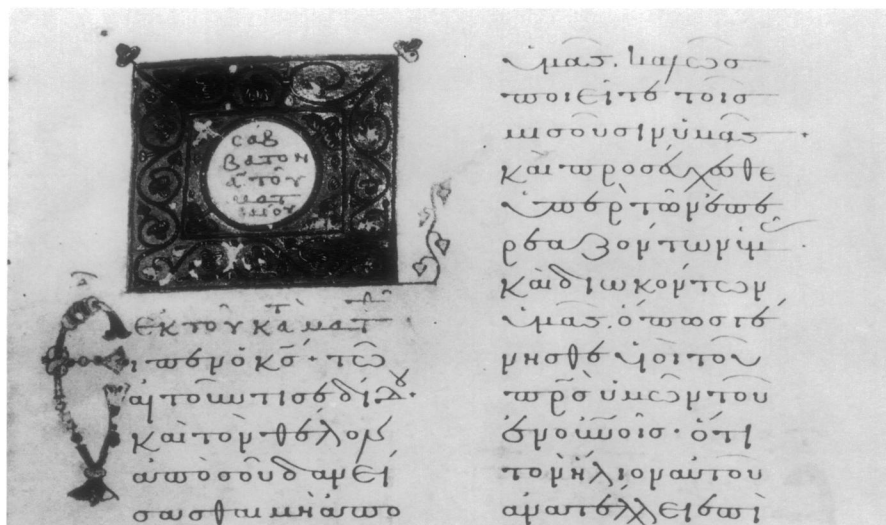 σαβ
βατον
α του
ματ
θαιου
εκ τοῦ κατὰ ματθ
Ειπεν ὁ κς· τῶ
αἰτοῦντι σε δίδου·
καὶ τὸν θέλοντ
ἀπὸ σοῦ δανεί
σασθαι μὴ ἀπο
ὑμᾶς. καλῶς
ποιεῖτε τοῖς
μισοῦσιν ὑμᾶς
καὶ προσεύχεσθε
ὑπὲρ τῶν ἐπη
ρεαζόντων ὑμ
καὶ διωκόντων
ὑμᾶς. ὅπως γέ
νησθε υἱοὶ τοῦ
πρς ὑμῶν τοῦ
ἐν οὐνοις· ὅτι
τὸν ἥλιον αὐτοῦ
ἀνατέλλει ἐπὶ